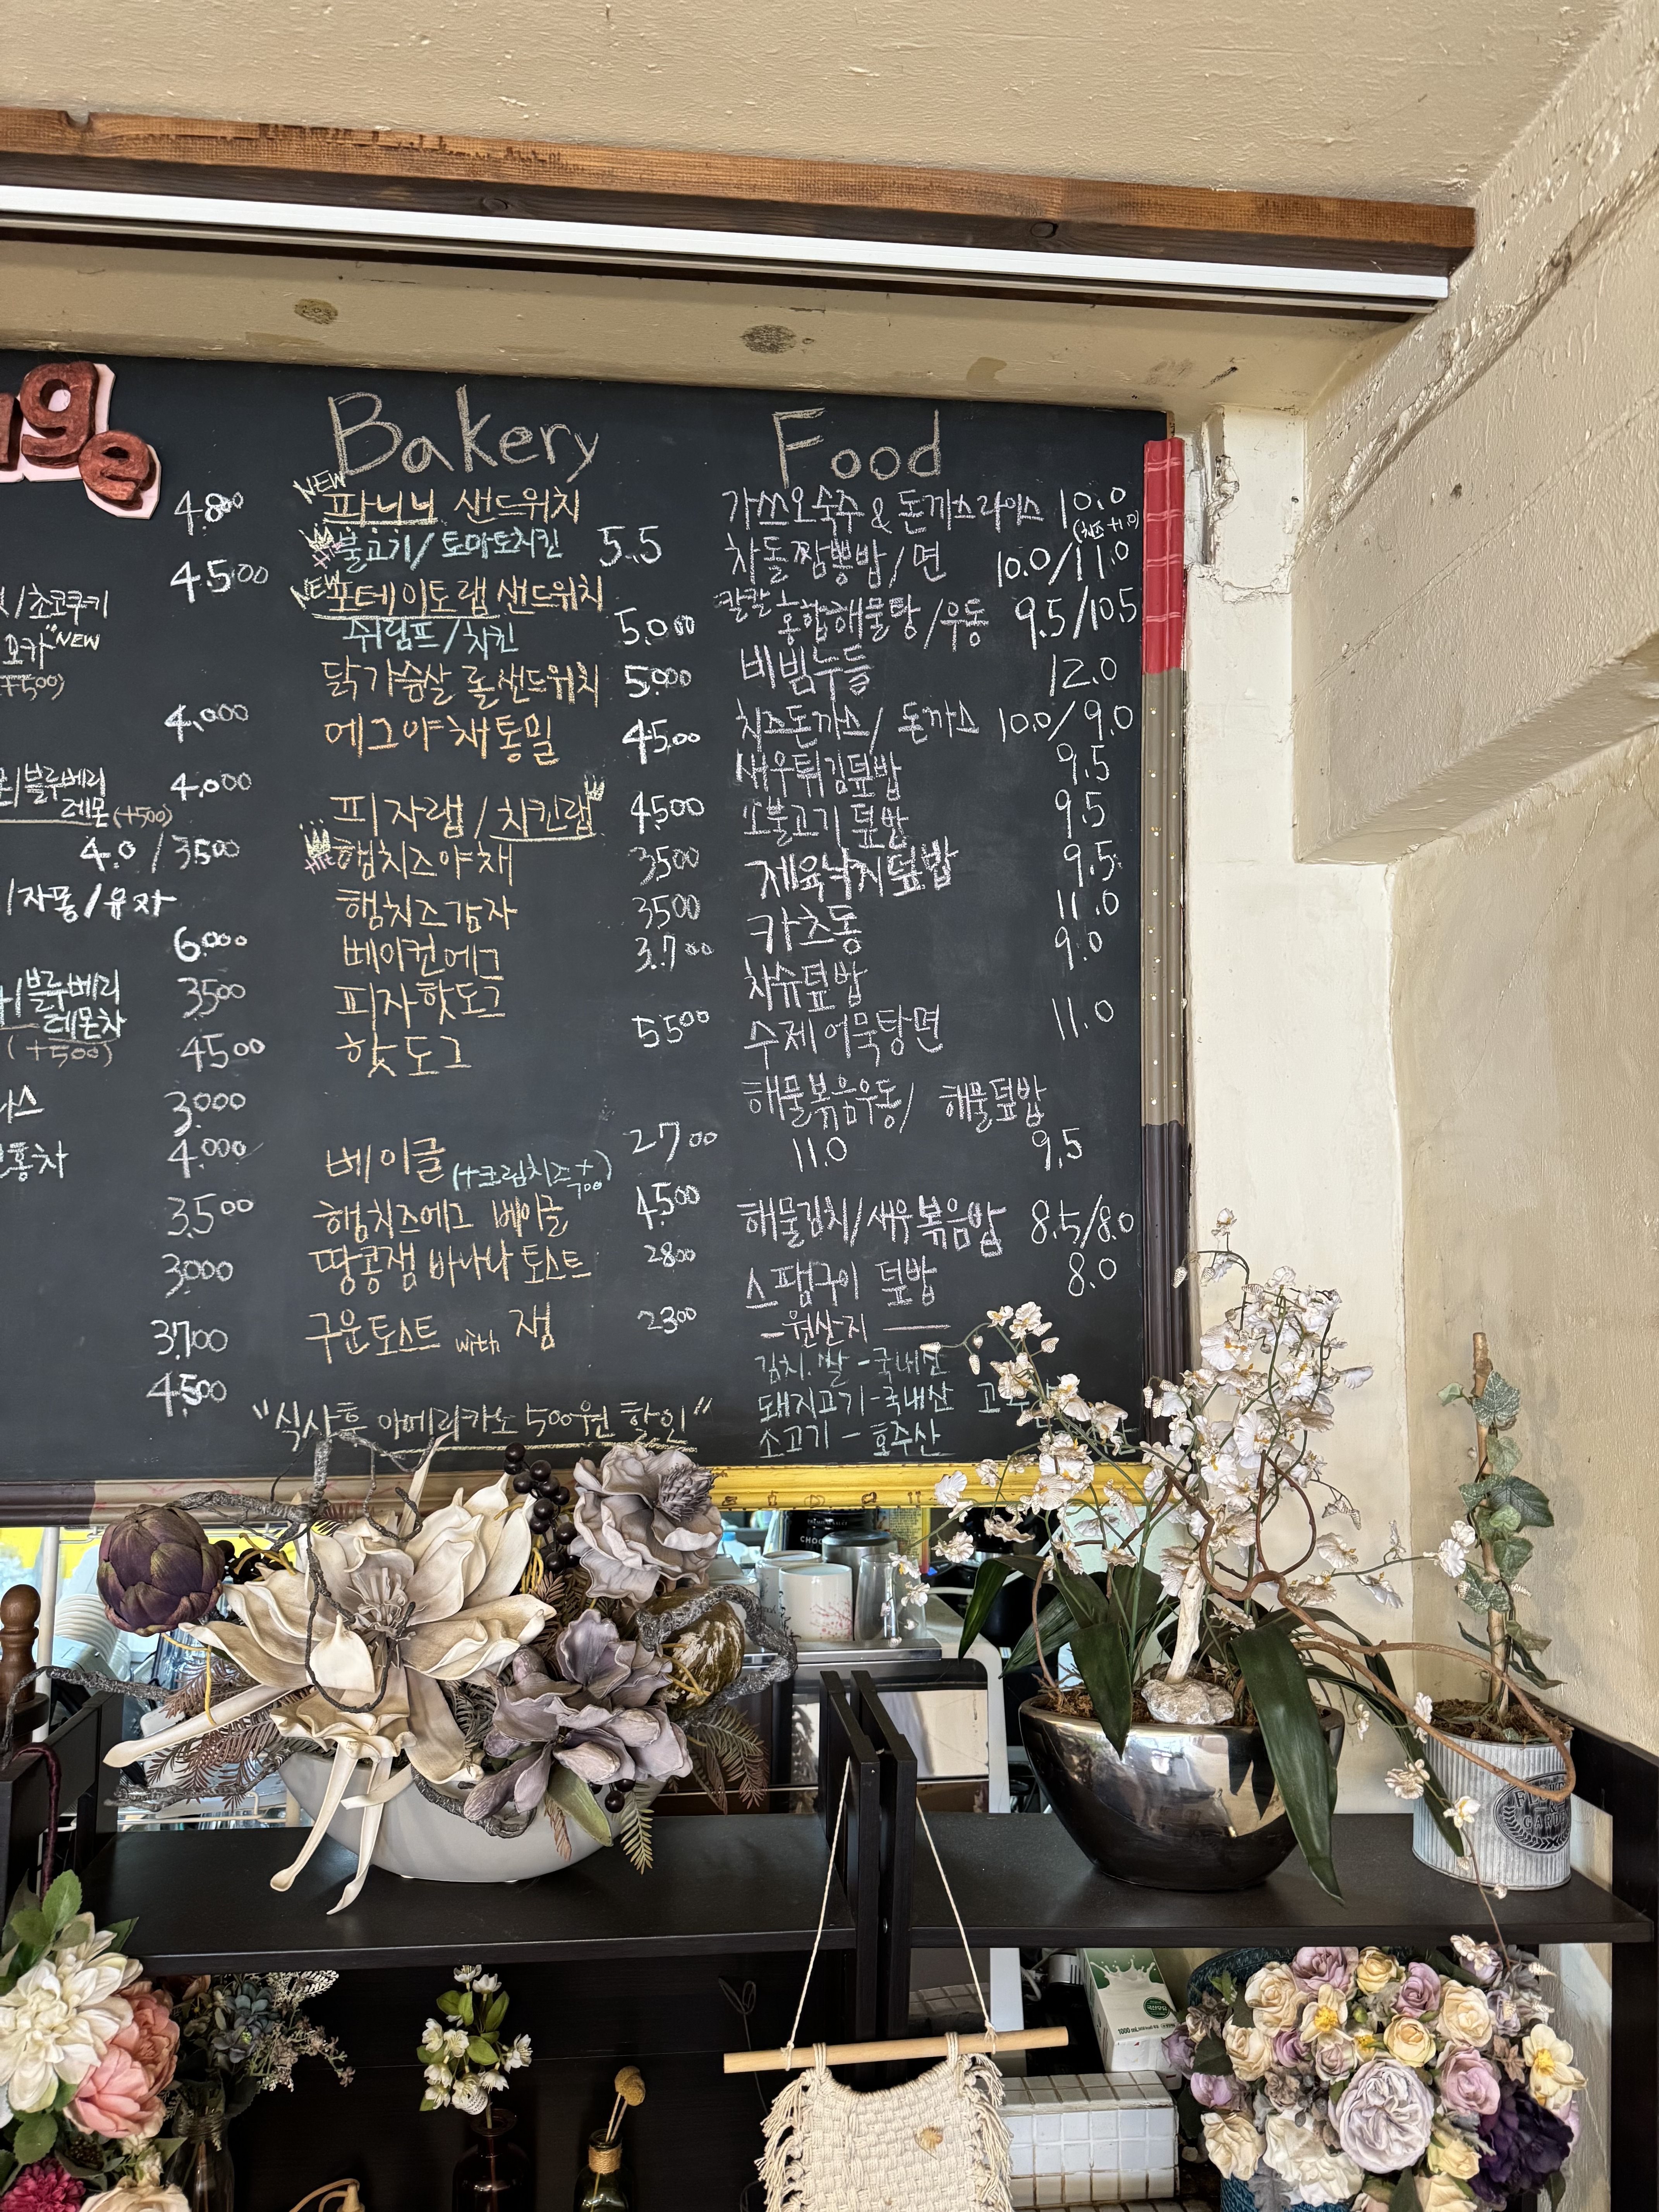 4.800
4.500
/초코쿠키
모카" NEW
(+500)
4.000
/블루베리 4.000
레몬(+500)
4.0 / 3500
/자몽/유자
6.000
/블루베리 3500
레몬차
(+500) 4500
3.000
4.000
3.500
3000
3.700
4.500
Bakery
NEW
파니니 샌드위치
불고기/토마토치킨 5.5
NEW
포테이토랩 샌드위치
쉬림프/치킨 5.000
닭가슴살 롤샌드위치 5.000
에그야채통밀 4500
피자랩/치킨랩 4500
햄치즈야채 3500
햄치즈감자 3500
베이컨에그 3.700
피자핫도그
핫도그 5500
베이글 (+크림치즈+700) 2700
햄치즈에그 베이글 4.500
땅콩잼 바나나 토스트 2800
구운토스트 with 잼 2300
"식사후 아메리카노 500원 할인"
Food
가쓰오숙주 & 돈까츠라이스 10.0
(치즈+1.0)
차돌짬뽕밥/면 10.0/11.0
칼칼 홍합해물탕/우동 9.5/10.5
비빔누들 12.0
치즈돈까스/ 돈까스 10.0/9.0
새우튀김덮밥 9.5
소불고기 덮밥 9.5
제육낙지덮밥 9.5
카츠동 11.0
차슈덮밥 9.0
수제어묵탕면 11.0
해물볶음우동/ 해물덮밥
11.0 9.5
해물김치/새우볶음밥 8.5/8.0
스팸구이 덮밥 8.0
-원산지 —
김치.쌀 -국내산
돼지고기-국내산
소고기 - 호주산
1000 mL